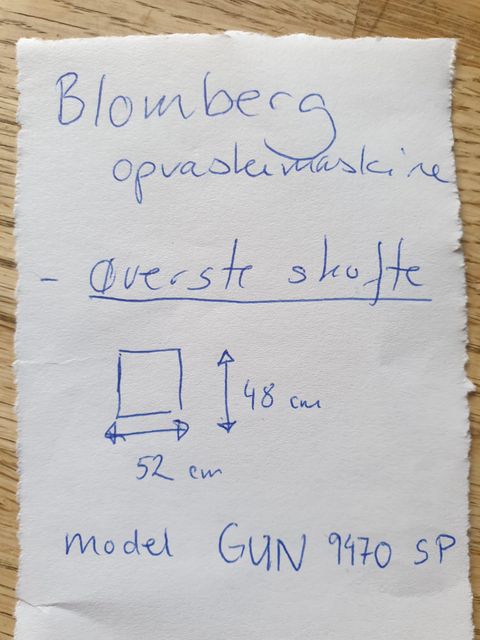 Blomberg
opvaskemaskine
- Øverste skuffe
48 cm
52 cm
model GUN 9470 SP